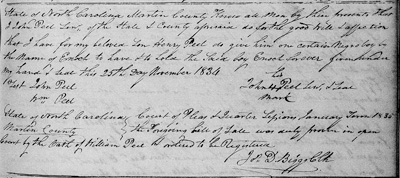 State of North Carolina Martin County Know all Men by these presents that
I John Peel Senr, of the State & County aforesaid do for the good will & affection
that I have for my beloved Son Henry Peel do give him one certain Negro boy by
the Name of Enoch to have & to hold the Said boy Enoch forever
my hand & Seal this 25th day November 1834
Test John Peel his
Wm Peel John Peel Senr, Seal
mark
State of North Carolina Court of Pleas & Quarter Sessions January Term 1835
Martin County The foregoing bill of Sale was duly proven in open
Court by the Oath of William Peel & ordered to be Registered
Jos D Biggs Clk